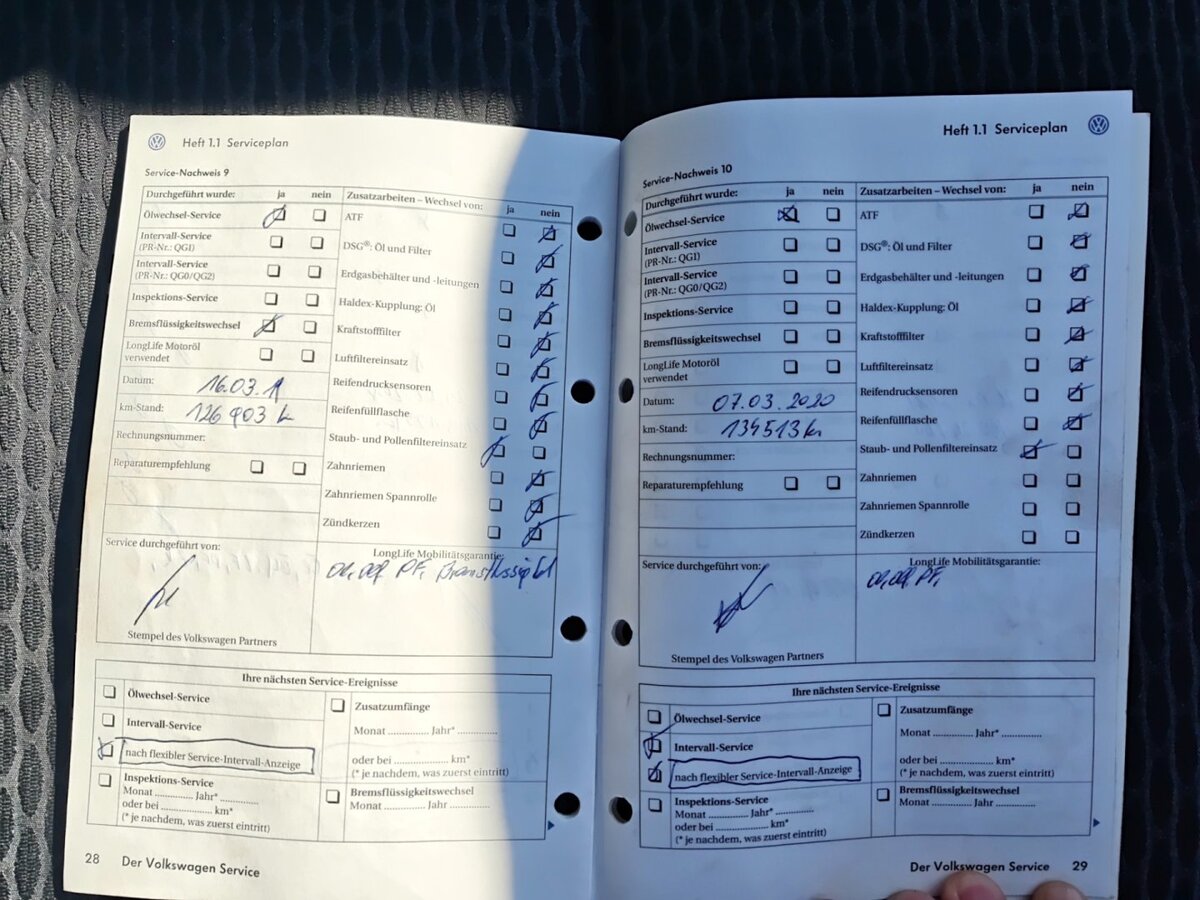 Heft 1.1 Serviceplan
Service-Nachweis 9
Durchgeführt wurde: ja nein
Ölwechsel-Service
Intervall-Service
(PR-Nr.: QG1)
Intervall-Service
(PR-Nr.: QG0/QG2)
Inspektions-Service
Bremsflüssigkeitswechsel
LongLife Motoröl
verwendet
Datum: 16.03.
km-Stand: 126 903 k
Rechnungsnummer:
Reparaturempfehlung
Zusatzarbeiten – Wechsel von:
ja nein
ATF
DSG®: Öl und Filter
Erdgasbehälter und -leitungen
Haldex-Kupplung: Öl
Kraftstofffilter
Luftfiltereinsatz
Reifendrucksensoren
Reifenfüllflasche
Staub- und Pollenfiltereinsatz
Zahnriemen
Zahnriemen Spannrolle
Zündkerzen
Service durchgeführt von:
Stempel des Volkswagen Partners
LongLife Mobilitätsgarantie:
PF,
Ihre nächsten Service-Ereignisse
Ölwechsel-Service
Intervall-Service
nach flexibler Service-Intervall-Anzeige
Inspektions-Service
Monat ............. Jahr* .............
oder bei ....................... km*
(* je nachdem, was zuerst eintritt)
Zusatzumfänge
Monat ............. Jahr* .............
oder bei ....................... km*
(* je nachdem, was zuerst eintritt)
Bremsflüssigkeitswechsel
Monat ............. Jahr .............
28 Der Volkswagen Service
Heft 1.1 Serviceplan
Service-Nachweis 10
Durchgeführt wurde: ja nein
Ölwechsel-Service
Intervall-Service
(PR-Nr.: QG1)
Intervall-Service
(PR-Nr.: QG0/QG2)
Inspektions-Service
Bremsflüssigkeitswechsel
LongLife Motoröl
verwendet
Datum: 07.03.2020
km-Stand: 134513 km
Rechnungsnummer:
Reparaturempfehlung
Zusatzarbeiten – Wechsel von: ja nein
ATF
DSG®: Öl und Filter
Erdgasbehälter und -leitungen
Haldex-Kupplung: Öl
Kraftstofffilter
Luftfiltereinsatz
Reifendrucksensoren
Reifenfüllflasche
Staub- und Pollenfiltereinsatz
Zahnriemen
Zahnriemen Spannrolle
Zündkerzen
Service durchgeführt von:
Stempel des Volkswagen Partners
LongLife Mobilitätsgarantie:
PF,
Ihre nächsten Service-Ereignisse
Ölwechsel-Service
Intervall-Service
nach flexibler Service-Intervall-Anzeige
Inspektions-Service
Monat ............. Jahr* .............
oder bei ....................... km*
(* je nachdem, was zuerst eintritt)
Zusatzumfänge
Monat ............. Jahr* .............
oder bei ....................... km*
(* je nachdem, was zuerst eintritt)
Bremsflüssigkeitswechsel
Monat ............. Jahr .............
Der Volkswagen Service 29